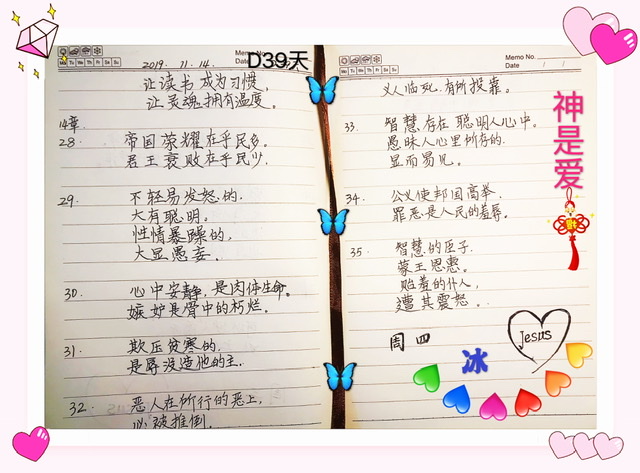 D39天
Memo No.
Mo Tu We Th Fr Sa Su
Date
2019. 11. 14.
让读书成为习惯,
让灵魂拥有温度。
14章
28. 帝国荣耀在乎民多.
君王衰败在乎民少.
29. 不轻易发怒的.
大有聪明。
性情暴躁的,
大显愚妄.
30. 心中安静,是肉体生命。
嫉妒是骨中的朽烂。
31. 欺压贫寒的.
是辱没造他的主.
32. 恶人在所行的恶上,
必被推倒.
Memo No.
Mo Tu We Th Fr Sa Su
Date / /
义人临死.有所投靠。
33. 智慧存在聪明人心中。
愚昧人心里所存的.
显而易见。
34. 公义使邦国高举.
罪恶是人民的羞辱。
35 智慧的臣子.
蒙王恩惠。
贻羞的仆人,
遭其震怒。
周四
冰
Jesus
神是爱